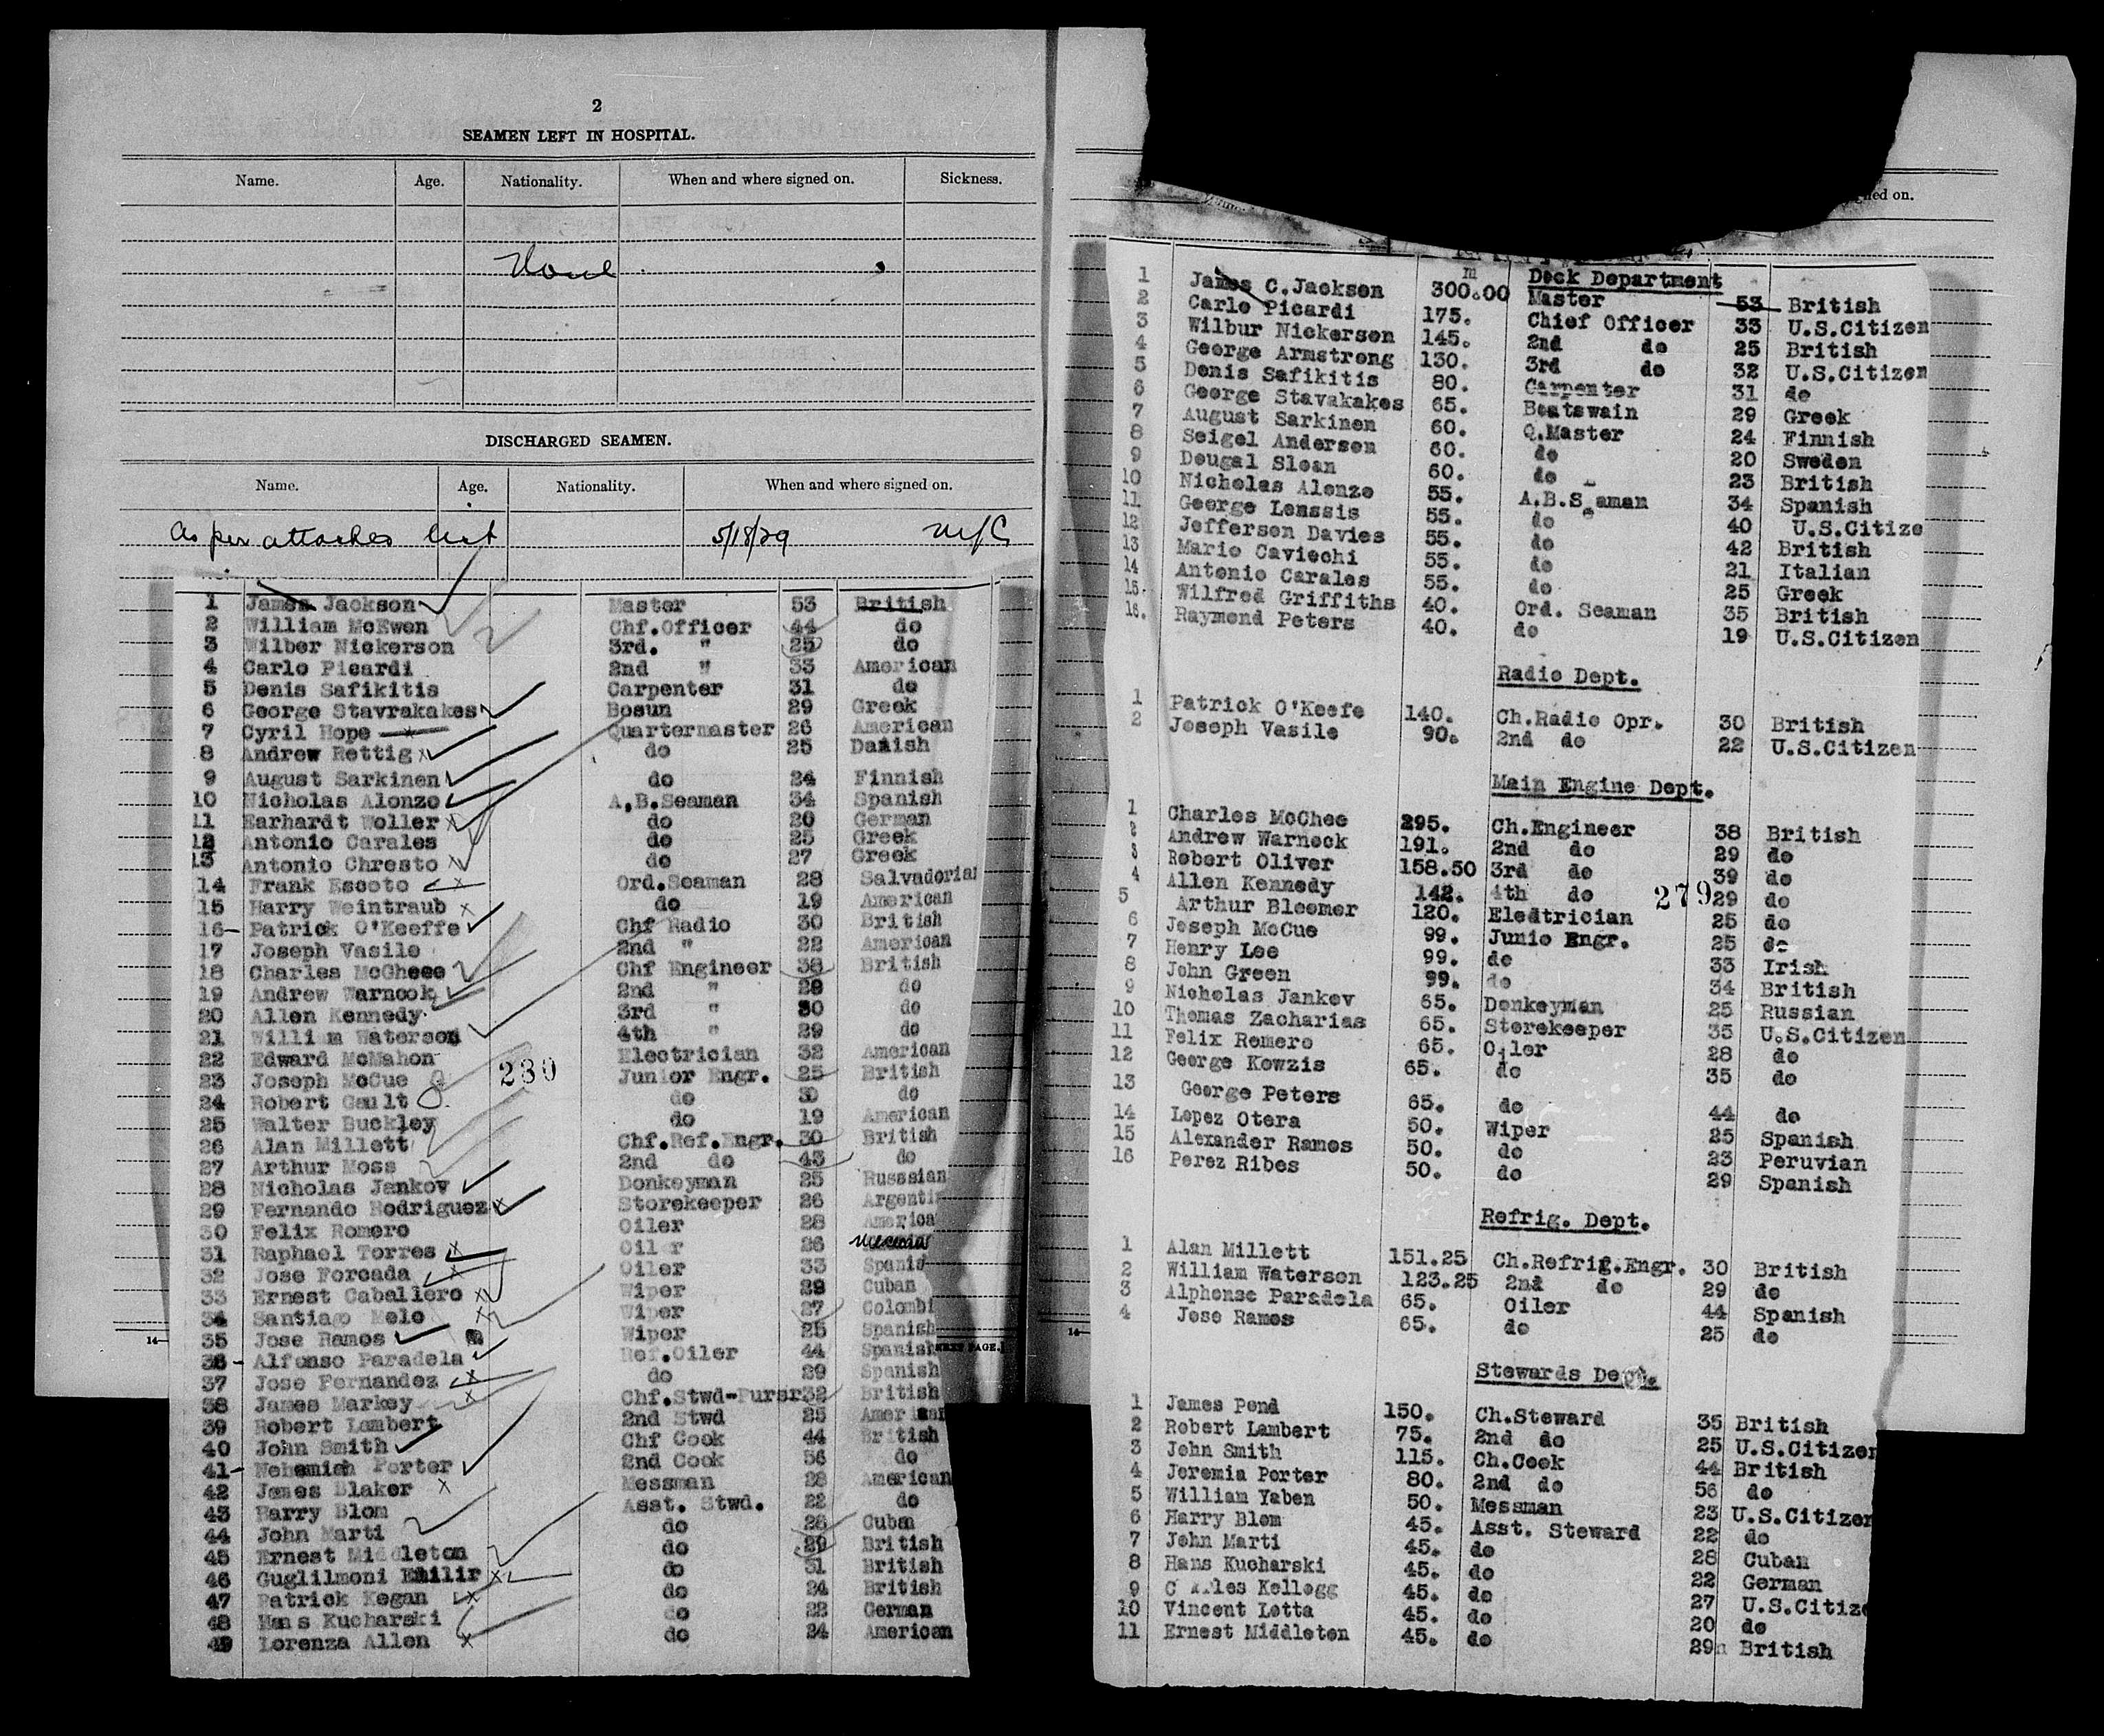 2
SEAMEN LEFT IN HOSPITAL.
Name. Age. Nationality. When and where signed on. Sickness.
None
DISCHARGED SEAMEN.
Name. Age. Nationality. When and where signed on.
As per attaches list 5/18/29 M/C
1 James Jackson Master 53 British
2 William McEwen Chf.Officer 44 do
3 Wilber Nickerson 3rd. " 25 do
4 Carlo Picardi 2nd " 33 American
5 Denis Safikitis Carpenter 31 do
6 George Stavrakakes Bosun 29 Greek
7 Cyril Hope Quartermaster 26 American
8 Andrew Rettig x do 25 Danish
9 August Sarkinen do 24 Finnish
10 Nicholas Alonzo A.B.Seaman 34 Spanish
11 Earhardt Woller x do 20 German
12 Antonio Carales do 25 Greek
13 Antonio Chresto x do 27 Greek
14 Frank Escoto x Ord.Seaman 28 Salvadorian
15 Harry Weintraub x do 19 American
16- Patrick O'Keeffe Chf Radio 30 British
17 Joseph Vasile 2nd " 22 American
18 Charles McGheee Chf Engineer 38 British
19 Andrew Warnock 2nd " 29 do
20 Allen Kennedy 3rd " 30 do
21 William Waterson 4th " 29 do
22 Edward McMahon Electrician 32 American
23 Joseph McCue 230 Junior Engr. 25 British
24 Robert Gault do 30 do
25 Walter Buckley do 19 American
26 Alan Millett Chf.Ref.Engr. 30 British
27 Arthur Moss 2nd do 43 do
28 Nicholas Jankov Donkeyman 25 Russsian
29 Fernando Rodriguez x Storekeeper 26 Argenti
30 Felix Romero Oiler 28 America
31 Raphael Torres x Oiler 26
32 Jose Forcada x Oiler 33 Spanis
33 Ernest Caballero x Wiper 29 Cuban
34 Santiago Melo x Wiper 27 Colombi
35 Jose Ramos Wiper 25 Spanish
36- Alfonso Paradela Ref.Oiler 44 Spanish
NEXT PAGE.]
37 Jose Fernandez x do 29 Spanish
38 James Markey x Chf.Stwd-Pursr 32 British
39 Robert Lambert 2nd Stwd 25 American
40 John Smith Chf Cook 44 British
41- Nehemiah Porter 2nd Cook 56 do
42 James Blaker x Messman 28 American
43 Harry Blom Asst. Stwd. 22 do
44 John Marti do 28 Cuban
45 Ernest Middleton do 29 British
46 Guglilmoni Emilir x do 31 British
47 Patrick Kegan x do 24 British
48 Hans Kucharski do 22 German
49 Lorenza Allen x do 24 American
14
ned on.
Deck Department
1 James C.Jackson 300.00 Master 53 British
2 Carlo Picardi 175. Chief Officer 33 U.S.Citizen
3 Wilbur Nickerson 145. 2nd do 25 British
4 George Armstrong 130. 3rd do 32 U.S.Citizen
5 Denis Safikitis 80. Carpenter 31 do
6 George Stavakakes 65. Boatswain 29 Greek
7 August Sarkinen 60. Q.Master 24 Finnish
8 Seigel Andersen 60. do 20 Sweden
9 Dougal Sloan 60. do 23 British
10 Nicholas Alonzo 55. A.B.Seaman 34 Spanish
11 George Lenssis 55. do 40 U.S.Citize
12 Jefferson Davies 55. do 42 British
13 Mario Caviechi 55. do 21 Italian
14 Antonio Carales 55. do 25 Greek
15. Wilfred Griffiths 40. Ord. Seaman 35 British
16. Raymond Peters 40. do 19 U.S.Citizen
Radio Dept.
1 Patrick O'Keefe 140. Ch.Radio Opr. 30 British
2 Joseph Vasile 90. 2nd do 22 U.S.Citizen
Main Engine Dept.
1 Charles McGhee 295. Ch.Engineer 38 British
2 Andrew Warnock 191. 2nd do 29 do
3 Robert Oliver 158.50 3rd do 39 do
4 Allen Kennedy 142. 4th do 279 29 do
5 Arthur Bloomer 120. Eledtrician 25 do
6 Joseph McCue 99. Junio Engr. 25 do
7 Henry Lee 99. do 33 Irish
8 John Green 99. do 34 British
9 Nicholas Jankov 65. Donkeyman 25 Russian
10 Thomas Zacharias 65. Storekeeper 35 U.S.Citizen
11 Felix Romero 65. Oiler 28 do
12 George Kowzis 65. do 35 do
13 George Peters 65. do 44 do
14 Lopez Otera 50. Wiper 25 Spanish
15 Alexander Ramos 50. do 23 Peruvian
16 Perez Ribes 50. do 29 Spanish
Refrig. Dept.
1 Alan Millett 151.25 Ch.Refrig.Engr. 30 British
2 William Waterson 123.25 2nd do 29 do
3 Alphonse Paradela 65. Oiler 44 Spanish
4 Jose Ramos 65. do 25 do
14
Stewards Dept.
1 James Pond 150. Ch.Steward 35 British
2 Robert Lambert 75. 2nd do 25 U.S.Citizen
3 John Smith 115. Ch.Cook 44 British
4 Jeremia Porter 80. 2nd do 56 do
5 William Yaben 50. Messman 23 U.S.Citizen
6 Harry Blom 45. Asst. Steward 22 do
7 John Marti 45. do 28 Cuban
8 Hans Kucharski 45. do 22 German
9 Charles Kellogg 45. do 27 U.S.Citize
10 Vincent Lotta 45. do 20 do
11 Ernest Middleton 45. do 29 British